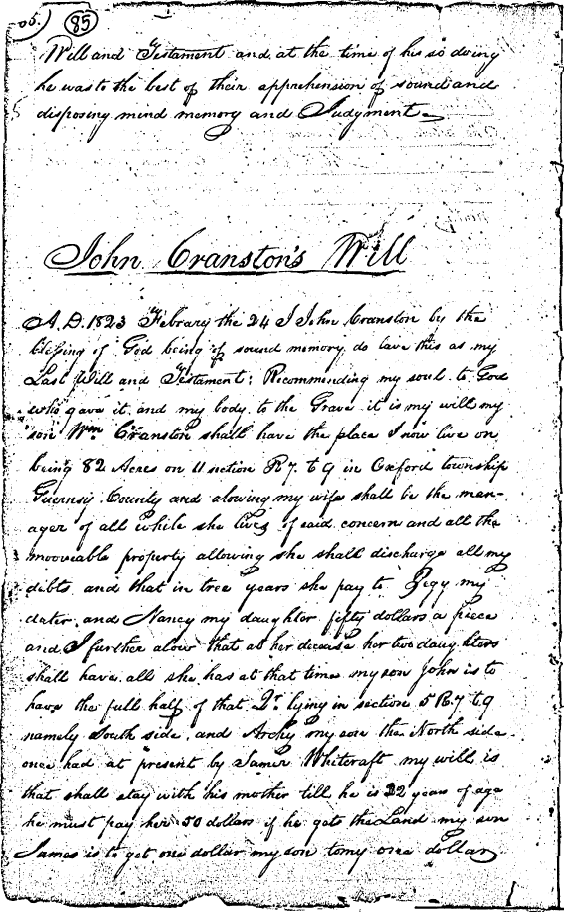 85
Will and Testament and at the time of his so doing
he was to the best of their apprehension of sound and
disposing mind memory and Judgment.
John Cranston's Will
A.D. 1823 Febrary the 24 I John Cranston by the
blessing of God being of sound memory do lave this as my
Last Will and Testament; Recommending my soul to God
who gave it and my body to the Grave it is my will my
son Wm Cranston shall have the place I now live on
being 82 Acres on 11 section R 7. t 9 in Oxford township
Guernsy County and alowing my wife shall be the man-
ager of all while she lives of said concern and all the
mooveable property allowing she shall discharge all my
dibts and that in tree years she pay to Pegy my
dater and Nancy my daughter fifty dollars a piece
and I further alow that at her decease her two daughters
shall have all she has at that time my son John is to
have the full half of that Qr lying in section 5 R. 7 t. 9
namely South side, and Archy my son the North side
once had at present by James Whitcraft my will is
that shall stay with his mother till he is 22 years of age
he must pay her 50 dollars if he gets the Land my son
James is to get one dollar my son tomy one dollar